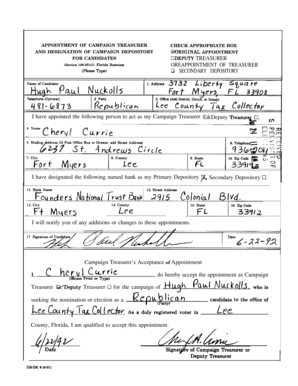 APPOINTMENT OF CAMPAIGN TREASURER
AND DESIGNATION OF CAMPAIGN DEPOSITORY
FOR CANDIDATES
(Section 106.021(1), Florida Statutes)
(Please Type)
CHECK APPROPRIATE BOX
ORIGINAL APPOINTMENT
DEPUTY TREASURER
REAPPOINTMENT OF TREASURER
SECONDARY DEPOSITORY
Name of Candidate
Hugh Paul Nuckolls
1. Address 3732 Liberty Square
Fort Myers, FL 33908
Telephone (Optional)
481-6873
2. Party
Republican
3. Office (Add District, Circuit, or Group)
Lee County Tax Collector
I have appointed the following person to act as my Campaign Treasurer Deputy Treasurer
4. Name
Cheryl Currie
5. Mailing Address (If Post Office Box or Drawer, add Street Address)
6237 St. Andrews Circle
6. Telephone
7. City
Fort Myers
8. County
Lee
9. State
FL
10. Zip Code
I have designated the following named bank as my Primary Depository Secondary Depository
11. Bank Name
Founders National Trust Bank
12. Street Address
2915 Colonial Blvd.
13. City
Ft Myers
14. County
Lee
15. State
FL
16. Zip Code
33912
I will notify you of any additions or changes to these appointments.
17. Signature of Candidate
Date
6-22-92
Campaign Treasurer's Acceptance of Appointment
I, Cheryl Currie do hereby accept the appointment as Campaign
(Please Print or Type)
Treasurer Deputy Treasurer for the campaign of Hugh Paul Nuckolls, who is
seeking the nomination or election as a Republican candidate to the office of
(Party)
Lee County Tax Collector As a duly registered voter in Lee
County, Florida, I am qualified to accept this appointment.
6/22/92
Date
Signature of Campaign Treasurer or
Deputy Treasurer